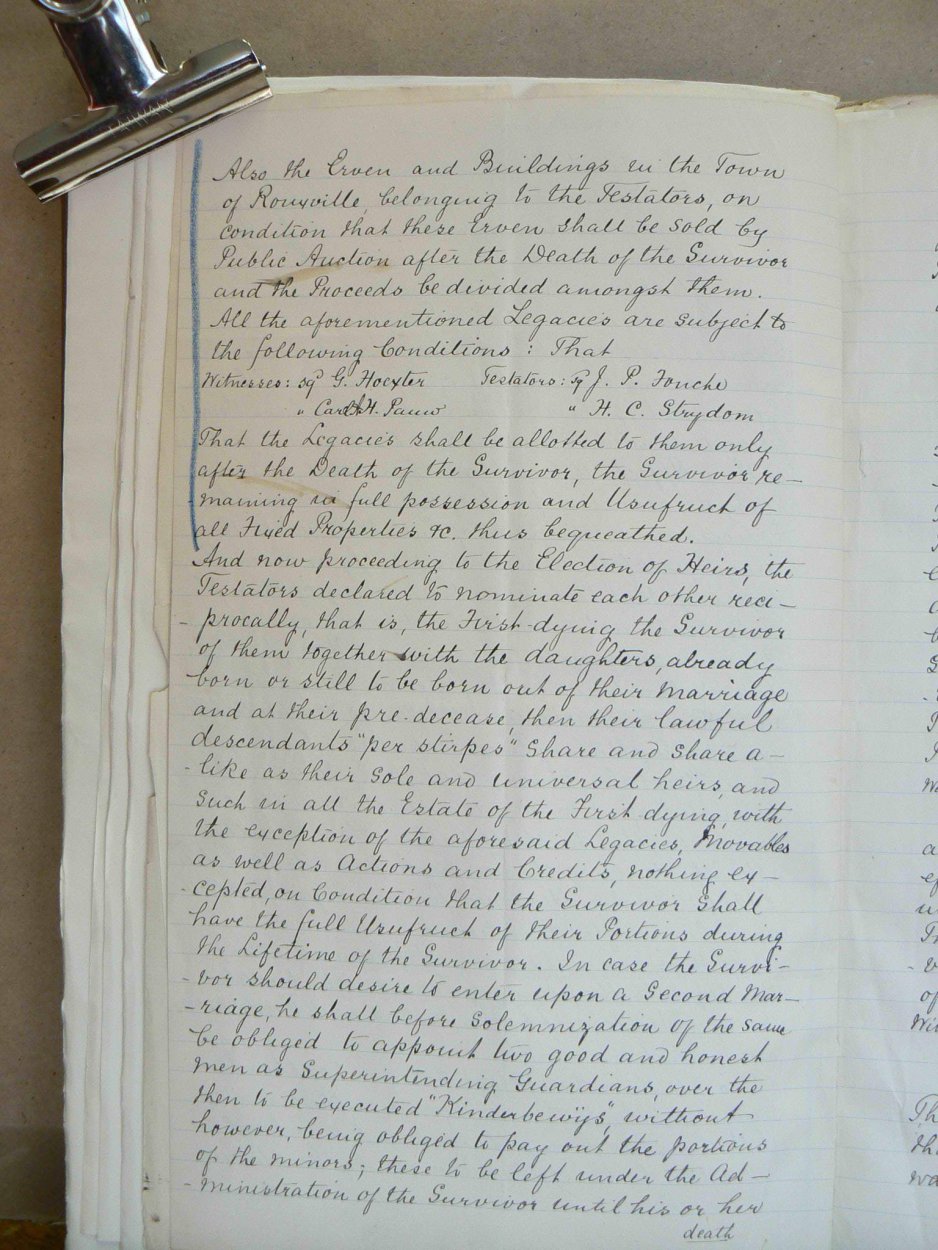 TAIWAN
Also the Erven and Buildings in the Town
of Rouxville, belonging to the Testators, on
condition that these Erven shall be sold by
Public Auction after the Death of the Survivor
and the Proceeds be divided amongst them.
All the aforementioned Legacies are subject to
the following Conditions : That
Witnesses: sgd G. Hoexter Testators: sg J. P. Fouche
" Carl H. Pauw " H. C. Strydom
That the Legacies shall be allotted to them only
after the Death of the Survivor, the Survivor re-
maining in full possession and Usufruct of
all Fixed Properties &c. thus bequeathed.
And now proceeding to the Election of Heirs, the
Testators declared to nominate each other reci-
- procally, that is, the First-dying the Survivor
of them together with the daughters, already
born or still to be born out of their marriage
and at their pre-decease, then their lawful
descendants "per stirpes" share and share a-
- like as their sole and universal heirs, and
such in all the Estate of the First dying, with
the exception of the aforesaid Legacies, Movables
as well as Actions and Credits, nothing ex-
- cepted, on Condition that the Survivor shall
have the full Usufruct of their Portions during
the Lifetime of the Survivor. In case the Survi-
- vor should desire to enter upon a Second Mar-
- riage, he shall before solemnization of the same
be obliged to appoint two good and honest
men as Superintending Guardians, over the
then to be executed "Kinderbewijs", without
however, being obliged to pay out the portions
of the minors; these to be left under the Ad-
- ministration of the Survivor until his or her
death